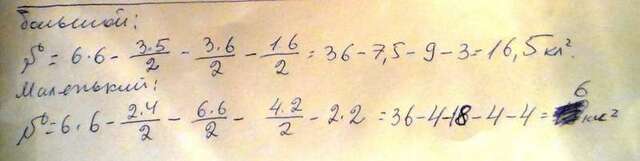 большой:
S = 6·6 - 3·5/2 - 3·6/2 - 1·6/2 = 36 - 7,5 - 9 - 3 = 16,5 кл².
Маленький:
S = 6·6 - 2·4/2 - 6·6/2 - 4·2/2 - 2·2 = 36 - 4 - 18 - 4 - 4 = 6 кл²